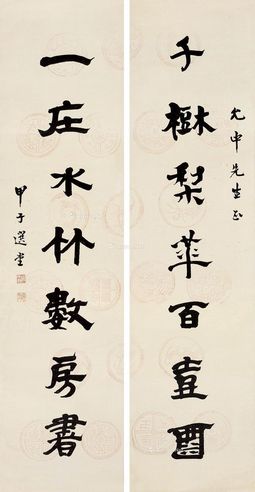 允中先生正
千樹梨華百壺酉
一庄水竹數房書
甲子選堂